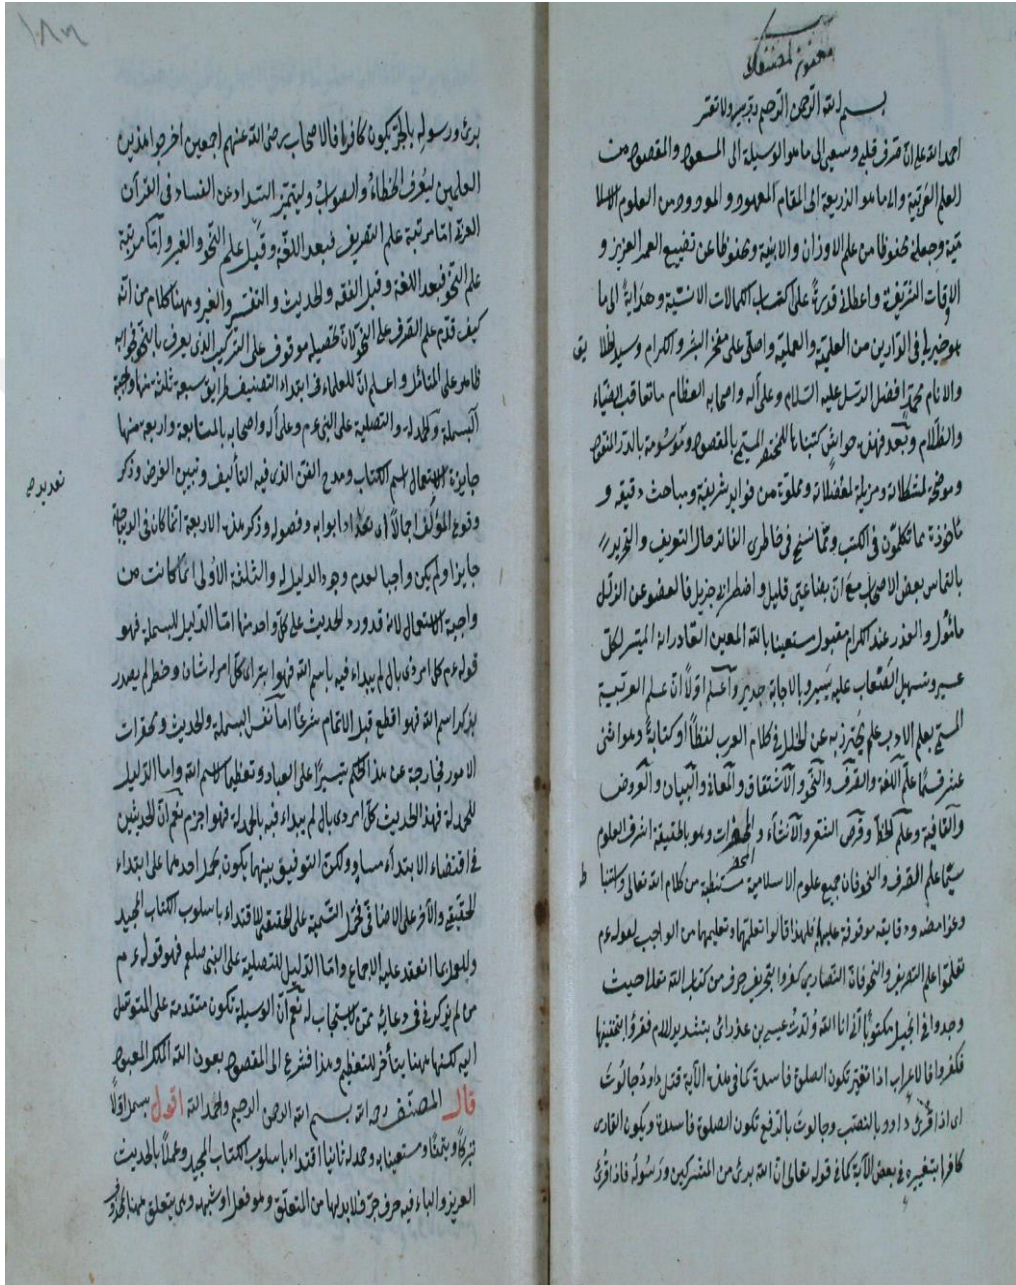 بسم الله الرحمن الرحيم رب يسر ولا تعسر
احمد الله على ان صرف قلبى وسعيى الى ما هو الوسيلة الى المسعود والمقصود من
العلم العربية والى ما هو الذريعة الى المقام المعهود والموعود من العلوم الاسلا
مية وجعلنى محفوظا من علم الاوزان والابنية ومحفوظا عن تضييع العمر العزيز و
الاوقات الشريفة واعطانى قدرة على اكتساب الكمالات الانسية وهداية الى ما
هو خير لى فى الدارين من العلمية والعملية واصلى على مفخر البشر والكرام وسيد الخلا
يق
والانام محمد افضل الرسل عليه السلام وعلى آله واصحابه العظام ما تعاقب الضياء
والظلام وبعد فهذه حواش كتبناها للمختصر المسمى بالمقصود وموسومة بالدر المنقود
وموضحة لمشكلاته ومزيلة لمعضلاته ومملوة من فوايد شريفة ومباحث دقيقة و
مأخوذة مما تكلمون فى الكتب ومما سنح فى خاطرى الفاتر حال التعريف والتحرير
بالتماس بعض الاصحاب مع ان بضاعتى قليل واضطرابى جزيل فالعفو عن الزلل
مأمول والعذر عند الكرام مقبول مستعينا بالله المعين القادر انه الميسر لكل
عسير وتسهيل الصعاب عليه يسير وبالاجابة جدير واعلم اولا ان علم العربية
المسمى بعلم الادب علم يحترز به عن الخلل فى كلام العرب لفظا او كتابة وهو اثنى
عشر قسما علم اللغة والصرف والنحو والاشتقاق والمعانى والبيان والعروض
والقافية وعلم الخط وقرض الشعر والانشاء والمحاضرات وهو بالحقيقة اشرف العلوم
سيما علم الصرف والنحو فان جميع علوم الاسلامية مستنبطة من كلام الله تعالى وكتبنا
وغوامضه ودقايقه موقوفة عليهما فلهذا قالوا تعلمها وتعليمها من الواجب لقوله عم
تعلموا علم التصريف والنحو فان النصارى كفروا بتحريف حرف من كتاب الله تعالى حيث
وجدوا فى انجيل مكتوبا انى انا الله ولدت عيسى بن عذرائى بتشديد اللام فقرؤا بتخفيفها
فكفروا فالاعراب اذا تغير تكون الصلوة فاسدة كما فى هذه الآية قتل داود جالوت
اى اذا قرئ داود بالنصب وجالوت بالرفع تكون الصلوة فاسدة ويكون القارى
كافرا بتغييره فى بعض الآية كما فى قوله تعالى ان الله برئ من المشركين ورسوله فاذا قرئ
برئ ورسوله بالجر يكون كافرا فالاصحاب رضى الله عنهم اجمعين اخرجوا هذين
العلمين ليعرف الخطاء والصواب وليتميز السداد عن الفساد فى القرآن
العزة اما مرتبة علم التصريف فبعد اللغة وقبل علم النحو والغير واما مرتبة
علم النحو فبعد اللغة وقبل الفقه والحديث والتفسير والغير وههنا كلام من انه
كيف قدم علم الصرف على النحو لان تحصيله موقوف على التركيب الذى يعرف بالنحو فجوابه
ظاهر على المتأمل واعلم ان للعلماء فى ابتداء التصنيف طرايق سبعة ثلثة منها واجبة
البسملة والحمدلة والتصلية على النبى عم وعلى آله واصحابه بالمتابعة واربعة منها
جايزة الاستعمال اسم الكتاب ومدح الفن الذى فيه التأليف وتبيين الغرض وذكر
وقوع المؤلف اجمالا اى تعداد ابوابه وفصوله وذكر هذه الاربعة انما كان فى الديباجة
جايزا ولم يكن واجبا لعدم وجود الدليل له والثلثة الاولى انما كانت من
واجبة الاستعمال لانه قد ورد الحديث على كل واحد منها اما الدليل للبسملة فهو
قوله عم كل امر ذى بال لم يبداء فيه باسم الله فهو ابتر اى كل امر له شان وخطر لم يصدر
بذكر اسم الله فهو اقطع قبل الاتمام شرعا اما نفس البسملة والحديث ومحقرات
الامور فخارجة عن هذا الحكم تيسيرا على العباد وتعظيما لاسم الله واما الدليل
للحمدلة فهذا الحديث كل امر ذى بال لم يبداء فيه بالحمدلة فهو اجزم نعم ان الحديثين
فى اقتضاء الابتداء مساو ولكن التوفيق بينهما يكون بحمل احدهما على ابتداء
الحقيقى والآخر على الاضافى فحمل التسمية على الحقيقى للاقتداء باسلوب الكتاب المجيد
وللعمل بما انعقد عليه الاجماع واما الدليل للتصلية على النبى صلعم فهو قوله عم
من لم يذكرنى فى دعائه ممن لا يستجاب له نعم ان الوسيلة تكون متقدمة على المتوسل
اليه لكنها ههنا يتأخر للتعظيم وهذا فشرع الى المقصود بعون الله الملك المعبود
قال المصنف رحمه الله بسم الله الرحمن الرحيم والحمد لله اقول بسمل اولا
تبركا وتيمنا ومستعينا به وحمد له ثانيا اقتداء باسلوب الكتاب المجيد وعملا بالحديث
العزيز والباء فيه حرف جر فلابد لها من المتعلق وهو فعل او شبهه وهى يتعلق ههنا بمحذوف